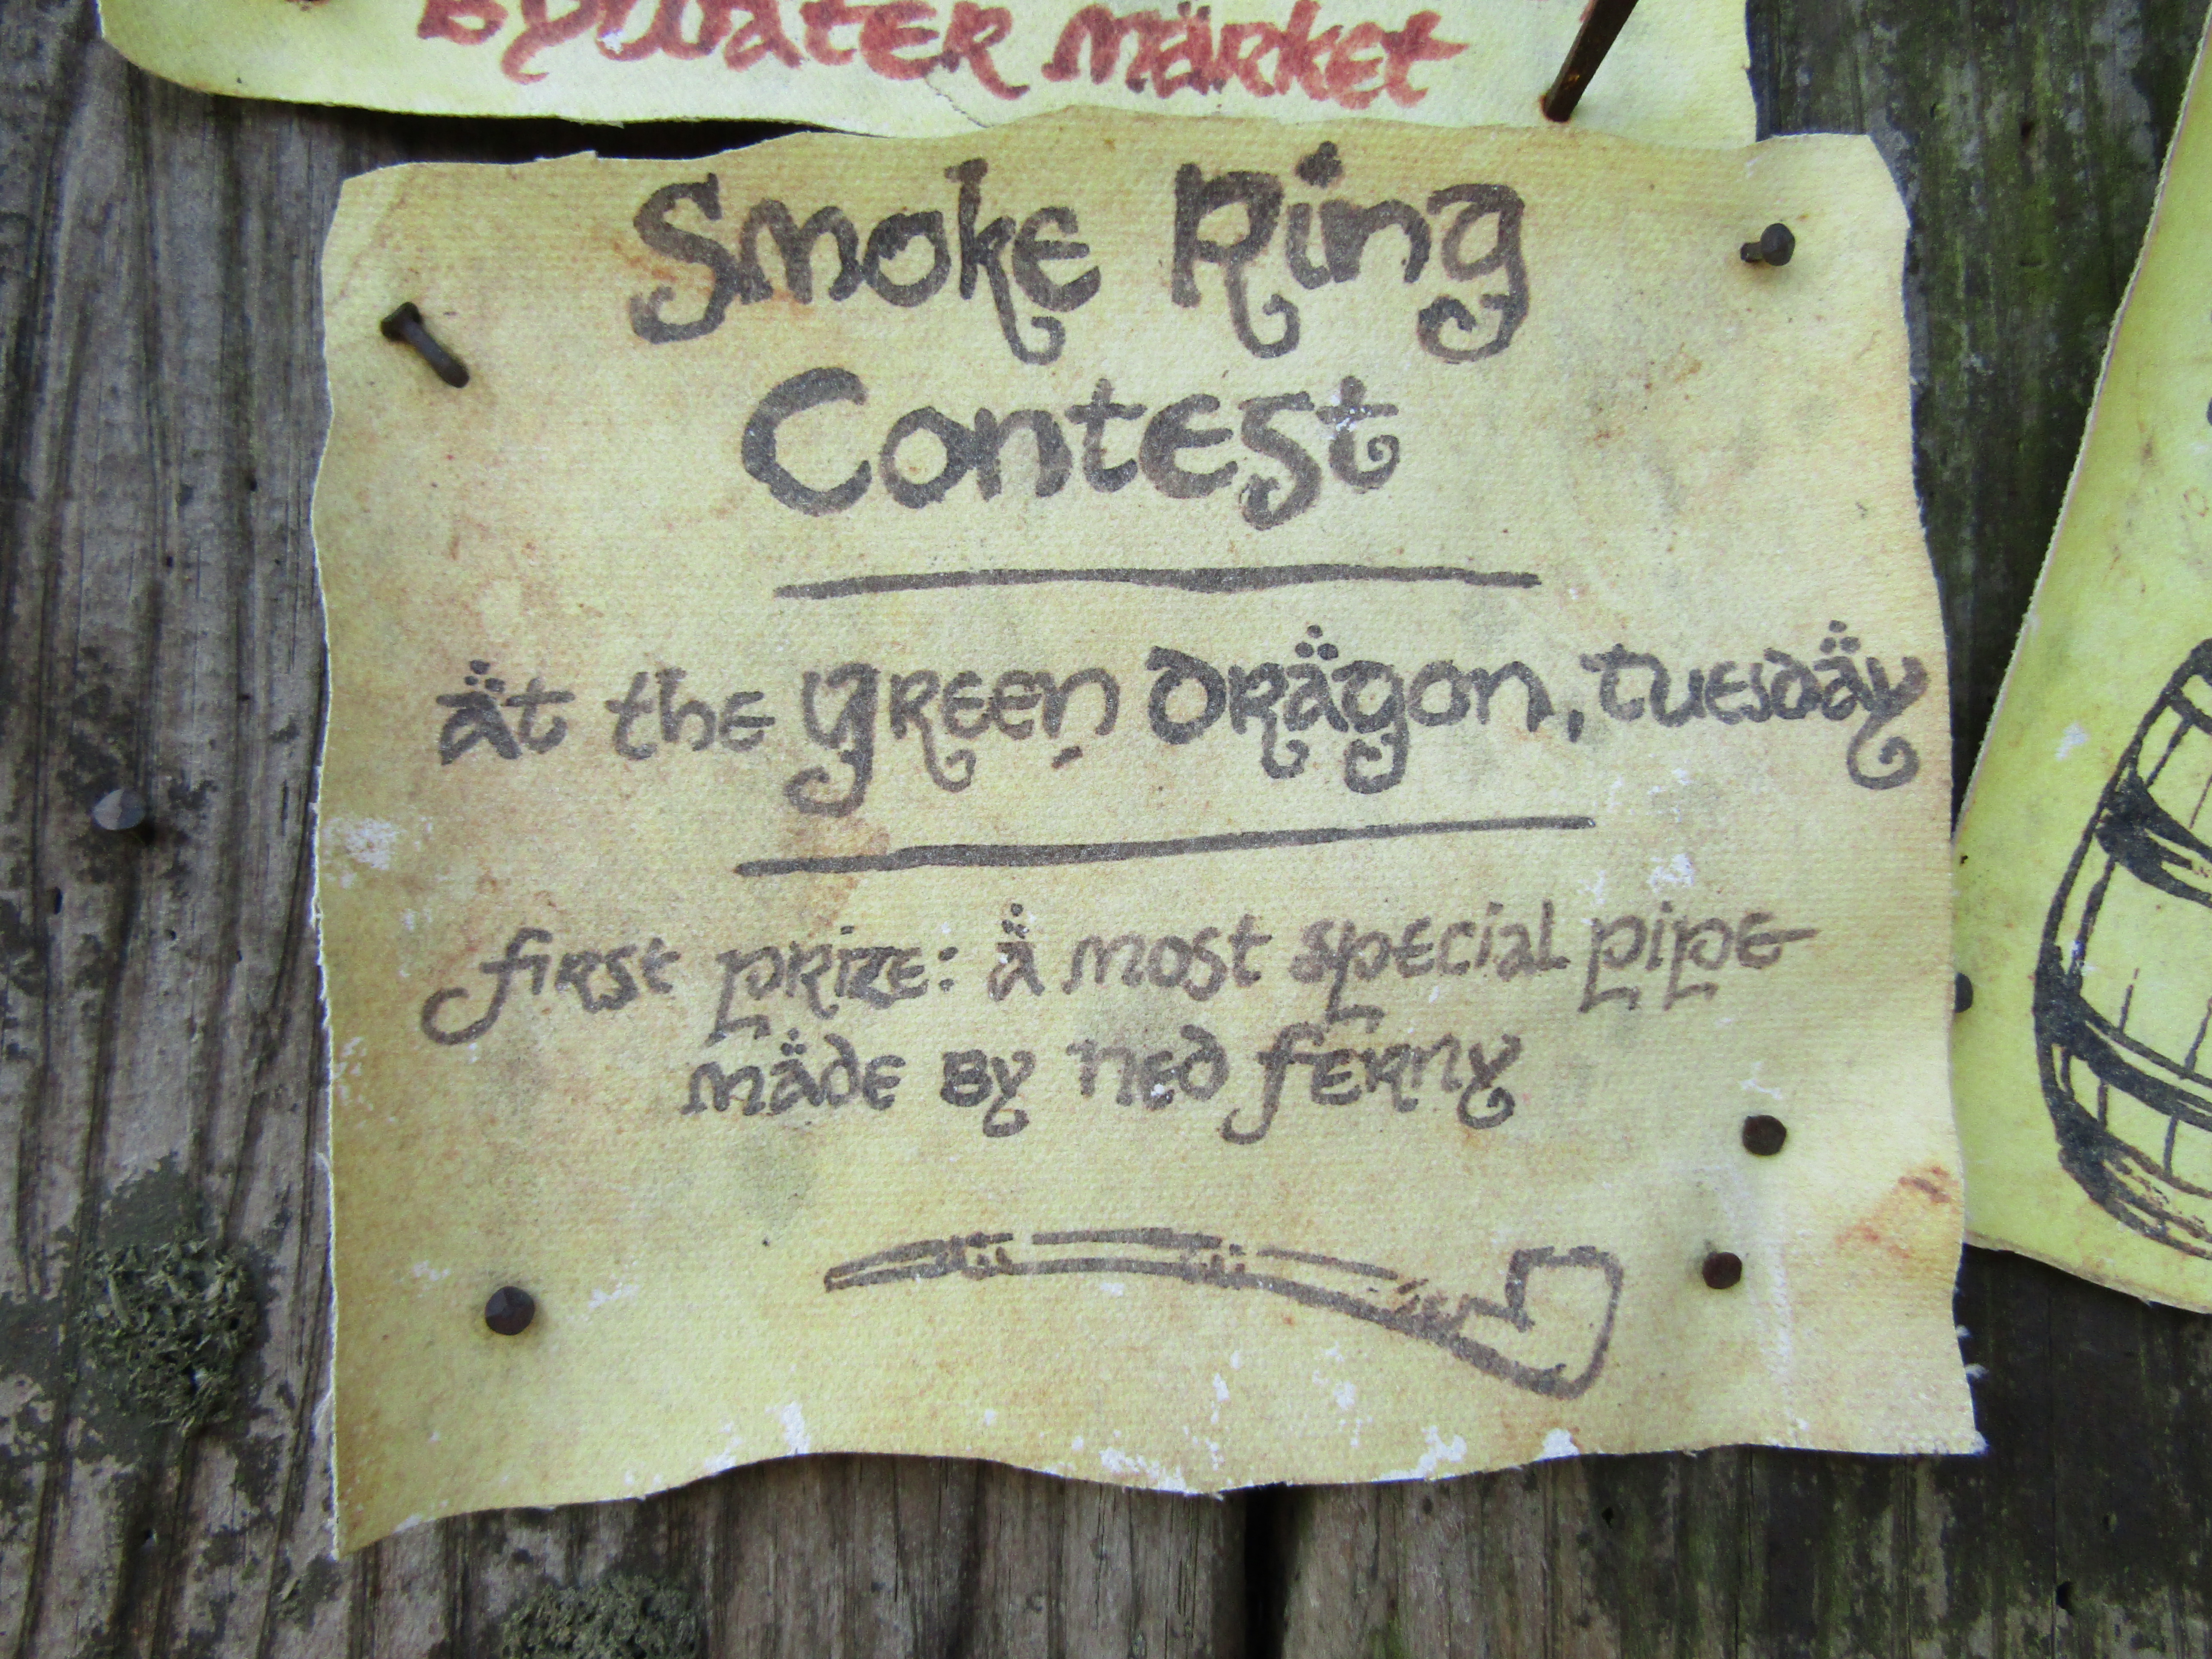 Bywater Market
Smoke Ring
Contest
at the Green Dragon, Tuesday
first prize: a most special pipe
made by Ned Ferny